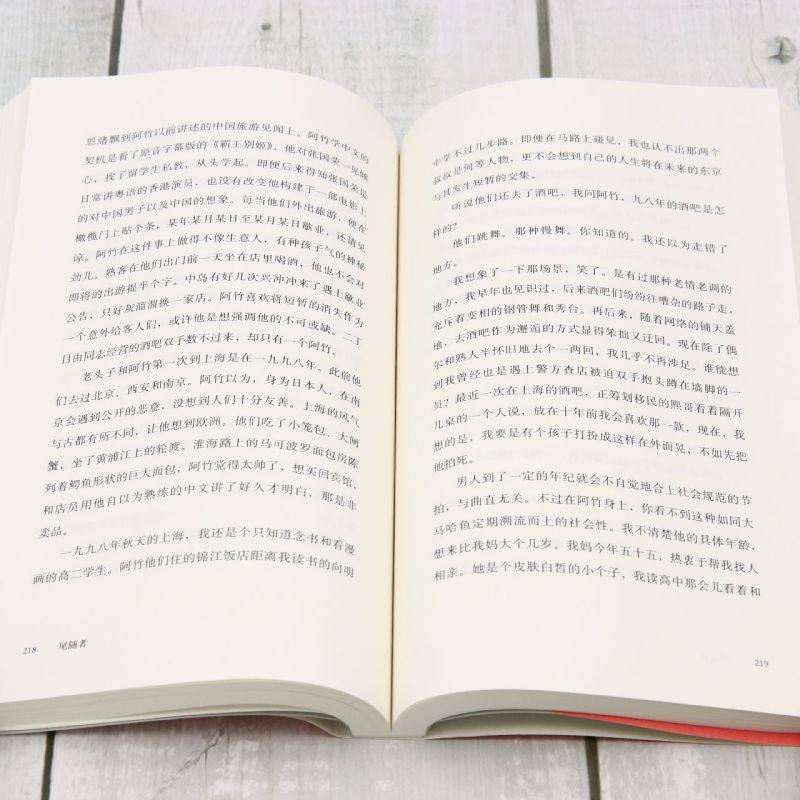 思绪飘到阿竹以前讲述的中国旅游见闻上。阿竹学中文的
契机是看了原音字幕版的《霸王别姬》，他对张国荣一见倾
心，找了留学生私教，从头学起。即便后来得知张国荣是
日常讲粤语的香港演员，也没有改变他构建于一部电影上
的对中国男子以及中国的想象。每当他们外出旅游，便在
橄榄门上贴个条，某年某月某日至某月某日歇业，还请见
谅。阿竹在这件事上做得不像生意人，有种孩子气的神秘
劲儿。熟客在他们出门前一天坐在店里喝酒，他也不会对
即将的出游提半个字。中岛有好几次兴冲冲来了遇上歇业
公告，只好灰溜溜换一家店。阿竹喜欢将短暂的消失作为
一个意外给客人们，或许他是想强调他的不可或缺。二丁
目由同志经营的酒吧双手数不过来，却只有一个阿竹。
老头子和阿竹第一次到上海是在一九九八年。此前他
们去过北京、西安和南京。阿竹以为，身为日本人，在南
京会遇到公开的恶意，没想到人们十分友善。上海的风气
与古都有所不同，让他想到欧洲。他们吃了小笼包、大闸
蟹，坐了黄浦江上的轮渡。淮海路上的马可波罗面包房陈
列着鳄鱼形状的巨大面包，阿竹觉得太帅了，想买回宾馆，
和店员用他自以为熟练的中文讲了好久才明白，那是非
卖品。
一九九八年秋天的上海，我还是个只知道念书和看漫
画的高二学生。阿竹他们住的锦江饭店距离我读书的向明
218 尾随者
中学不过几步路。即便在马路上碰见，我也认不出那两个
叔叔是何等人物，更不会想到自己的人生将在未来的东京
与其发生短暂的交集。
听说他们还去了酒吧，我问阿竹，九八年的酒吧是怎
样的？
他们跳舞。那种慢舞。你知道的。我还以为走错了
地方。
我想象了一下那场景，笑了。是有过那种老情老调的
地方，我早年也见识过，后来酒吧们纷纷往嘈杂的路子走，
充斥着变相的钢管舞和秀台。再后来，随着网络的铺天盖
地，去酒吧作为邂逅的方式显得笨拙又迂回。现在除了偶
尔和熟人怀旧地去个一两回，我几乎不再涉足。谁能想
到我曾经也是遇上警方查店被迫双手抱头蹲在墙脚的一
员？最近一次在上海的酒吧，正筹划移民的熙哥看着隔开
几桌的一个人说，放在十年前我会喜欢那一款，现在，我
想的是，我要是有个孩子打扮成这样在外面晃，不如先把
他拍死。
男人到了一定的年纪就会不自觉地合上社会规范的节
拍，与曲直无关。不过在阿竹身上，你看不到这种如同大
马哈鱼定期溯流而上的社会性。我不清楚他的具体年龄，
想来比我妈大个几岁。我妈今年五十五，热衷于帮我找人
相亲。她是个皮肤白皙的小个子，我读高中那会儿看着和
219